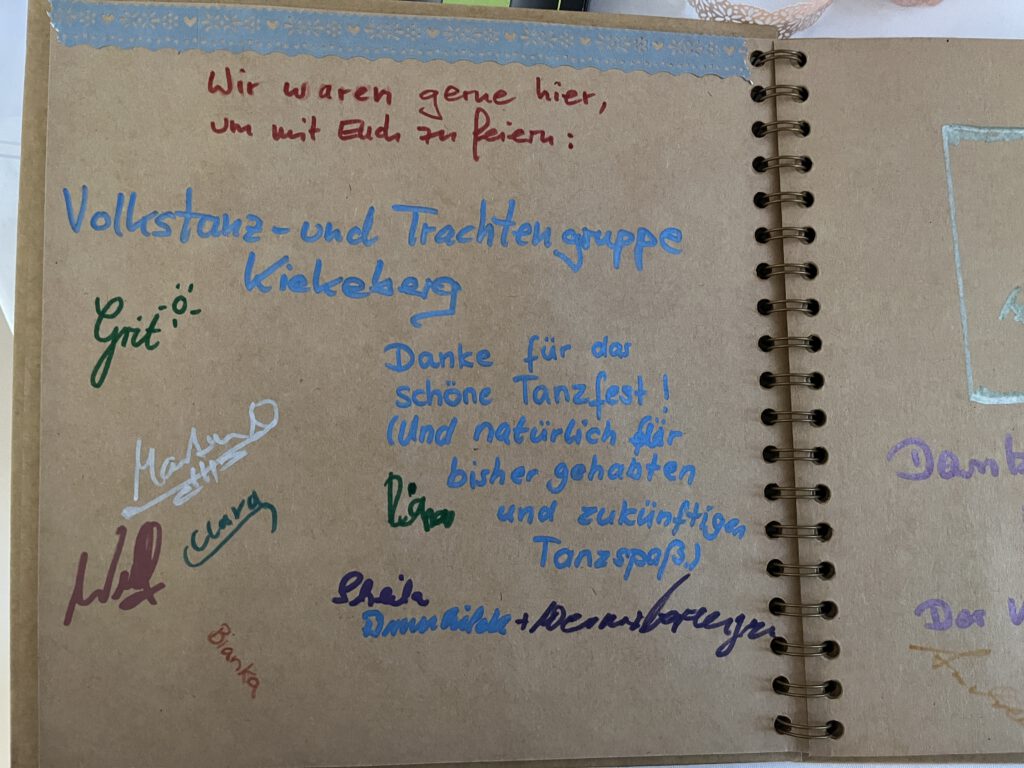 Wir waren gerne hier,
um mit Euch zu feiern:
Volkstanz- und Trachtengruppe
Kiekeberg
Grit
Danke für das
schöne Tanzfest!
(Und natürlich für
bisher gehabten
und zukünftigen
Tanzspaß)
Clara
Sheila
Bianka
Dank
Der